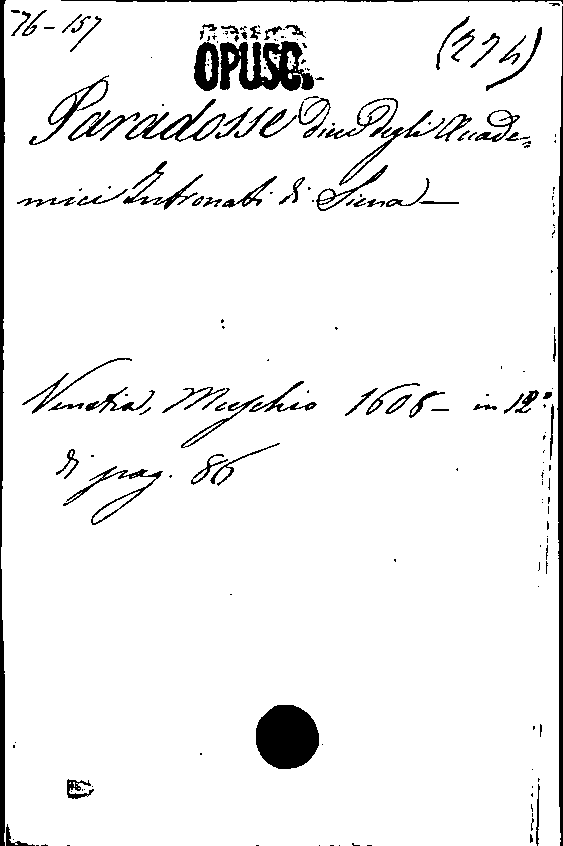 76-157
OPUSC.
(274)
Paradosse Dieci degli Accade=
mici Intronati di Siena —
Venetia, Muschio 1608 - in 12°
di pag. 86